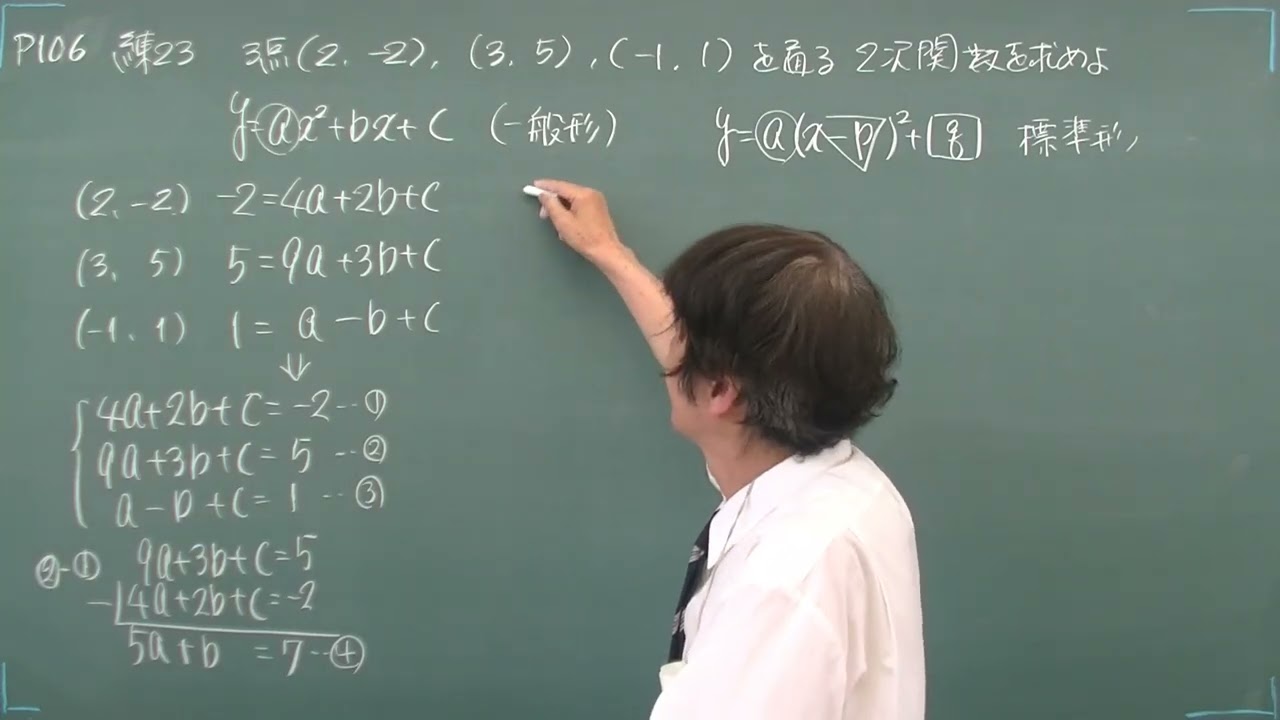 P106 練23 3点(2, -2), (3, 5), (-1, 1)を通る 2次関数を求めよ
y=ax²+bx+c (一般形) y=a(x-p)²+q 標準形
(2, -2) -2=4a+2b+c
(3, 5) 5=9a+3b+c
(-1, 1) 1= a-b+c
⇓
4a+2b+c=-2…①
9a+3b+c=5…②
a-b+c=1…③
②-① 9a+3b+c=5
-)4a+2b+c=-2
5a+b =7…④